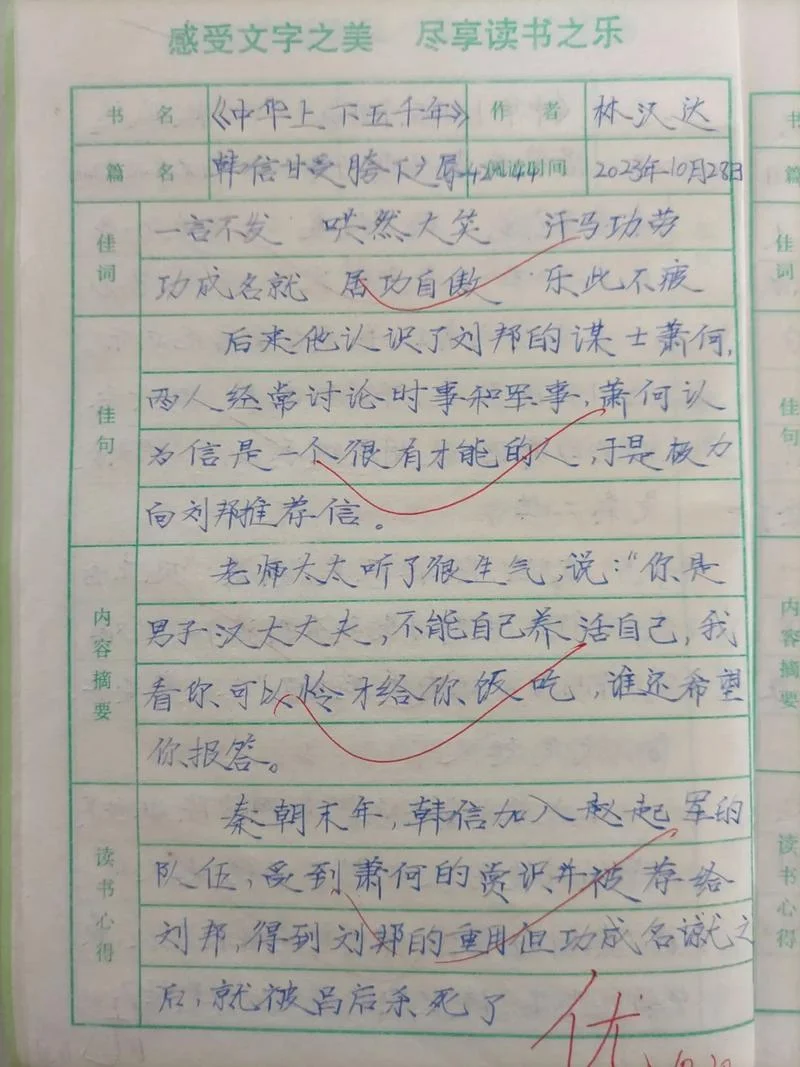 感受文字之美 尽享读书之乐
书名 《中华上下五千年》 作者 林汉达
篇名 韩信甘受胯下之辱 42-44 阅读时间 2023年10月28日
佳词
一言不发 哄然大笑 汗马功劳
功成名就 居功自傲 乐此不疲
佳句
后来他认识了刘邦的谋士萧何,
两人经常讨论时事和军事,萧何认
为信是一个很有才能的人,于是极力
向刘邦推荐信。
内容摘要
老师太太听了很生气,说:“你是
男子汉大丈夫,不能自己养活自己,我
看你可以怜才给你饭吃,谁还希望
你报答。
读书心得
秦朝末年,韩信加入赵起军的
队伍,受到萧何的赏识并被荐给
刘邦,得到刘邦的重用但功成名就之
后,就被吕后杀死了
优
书
篇
佳词
佳句
内容摘要
读书心得